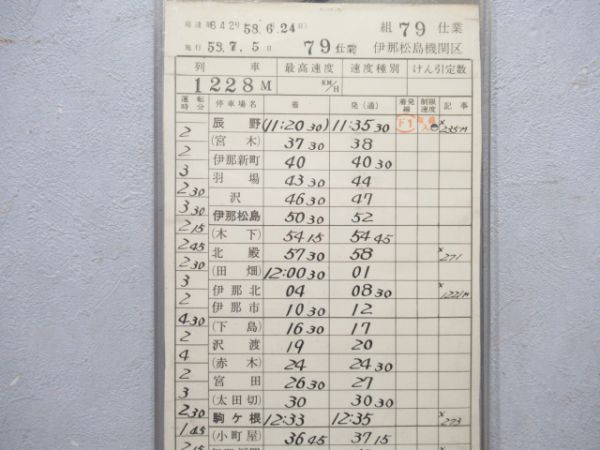 局達 第642号 58.6.24 組 79 仕業
施行 58.7.5 79仕業 伊那松島機関区
列車 最高速度 速度種別 けん引定数
1228M KM/H
運転時分 停車場名 着 発(通) 着発線 制限速度 記事
辰野 (11:20 30) 11:35 30 下1 ×235M
2
(宮木) 37 30 38
2
伊那新町 40 40 30
3
羽場 43 30 44
2 30
沢 46 30 47
3 30
伊那松島 50 30 52
2 15
(木下) 54 15 54 45
2 45
北殿 57 30 58 ×271
2 30
(田畑) 12:00 30 01
3
伊那北 04 08 30 ×1221M
2
伊那市 10 30 12
4 30
(下島) 16 30 17
2
沢渡 19 20
4
(赤木) 24 24 30
2
宮田 26 30 27
3
(太田切) 30 30 30
2 30
駒ケ根 12:33 12:35 ×273
1 45
(小町屋) 36 45 37 15
2 15